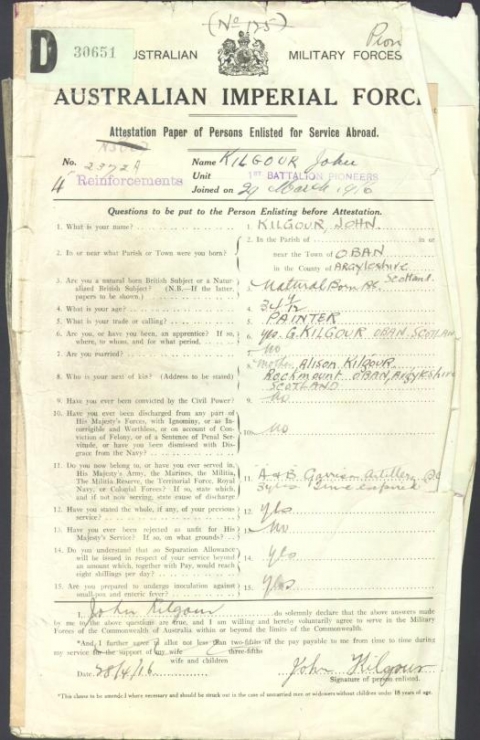 (No 175)
D
30651
Pion
AUSTRALIAN MILITARY FORCES
AUSTRALIAN IMPERIAL FORC
Attestation Paper of Persons Enlisted for Service Abroad.
No. 2372A
Name KILGOUR, John
Unit 1ST BATTALION PIONEERS
4 Reinforcements
Joined on 29 March 1916
Questions to be put to the Person Enlisting before Attestation.
1. What is your name?
1. KILGOUR, JOHN
2. In or near what Parish or Town were you born?
2. In the Parish of in or
near the Town of OBAN
in the County of ARGYLESHIRE
Scotland
3. Are you a natural born British Subject or a Natur-
alized British Subject? (N.B.—If the latter,
papers to be shown.)
3. Natural Born
4. What is your age?
4. 34
5. What is your trade or calling?
5. PAINTER
6. Are you, or have you been, an apprentice? If so,
where, to whom, and for what period.
6. Yes. G. KILGOUR OBAN SCOTLAN
7. Are you married?
No
8. Who is your next of kin? (Address to be stated)
8. Mother Alison KILGOUR
Rockmount OBAN, Argyleshire
SCOTLAND
9. Have you ever been convicted by the Civil Power?
9. No
10. Have you ever been discharged from any part of
His Majesty's Forces, with Ignominy, or as In-
corrigible and Worthless, or on account of Con-
viction of Felony, or of a Sentence of Penal Ser-
vitude, or have you been Dismissed with Dis-
grace from the Navy?
10. No
11. Do you now belong to, or have you ever served in,
His Majesty's Army, the Marines, the Militia,
The Militia Reserve, the Territorial Force, Royal
Navy, or Colonial Forces? If so, state which,
and if not now serving, state cause of discharge
11. A & B Garrison Artillery
3 yrs Time expired
12. Have you stated the whole, if any, of your previous
service?
12. Yes
13. Have you ever been rejected as unfit for His
Majesty's Service? If so, on what grounds?
13. No
14. Do you understand that no Separation Allowance
will be issued in respect of your service beyond
an amount which, together with Pay, would reach
eight shillings per day?
14. Yes
15. Are you prepared to undergo inoculation against
small-pox and enteric fever?
15. Yes
I, John Kilgour do solemnly declare that the above answers made
by me to the above questions are true, and I am willing and hereby voluntarily agree to serve in the Military
Forces of the Commonwealth of Australia within or beyond the limits of the Commonwealth.
*And I further agree to allot not less than two-fifths of the pay payable to me from time to time during
three-fifths
my service for the support of my wife
wife and children
Date 28/4/16
John Kilgour
Signature of person enlisted.
*This clause to be amended where necessary and should be struck out in the case of unmarried men or widowers without children under 18 years of age.